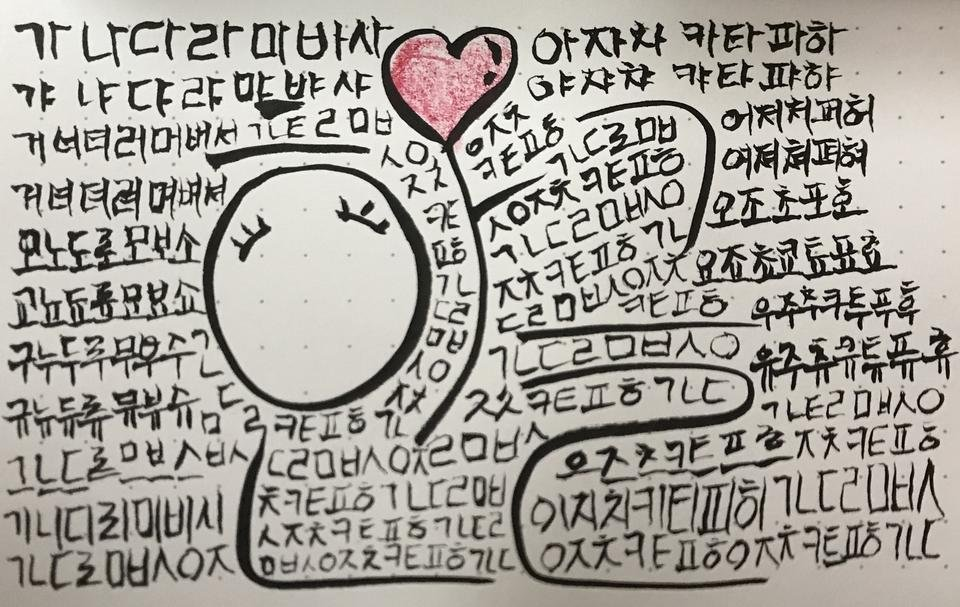 가 나 다 라 마 바 사
아 자 차 카 타 파 하
갸 냐 댜 랴 먀 뱌 샤
야 쟈 챠 캬 탸 퍄 햐
거 너 더 러 머 버 서 ㄱㄴㄷㄹㅁㅂ
ㅅㅇㅈㅊ
ㅋㅌㅍㅎ
ㄱㄴㄷㄹㅁㅂ
ㅅㅇㅈㅊㅋㅌㅍㅎ
ㄱㄴㄷㄹㅁㅂㅅㅇ
ㅈㅊㅋㅌㅍㅎㄱㄴ
ㄷㄹㅁㅂㅅㅇㅈㅊ
ㅋㅌㅍㅎ
어저처퍼허
여져쳐펴혀
오조초포호
요죠쵸쿄툐표효
우주추쿠투푸후
유쥬츄큐튜퓨휴
겨 녀 뎌 려 며 벼 셔
모보소
교뇨됴료묘뵤쇼
구누두루무부수ㄱ
규뉴듀류뮤뷰슈ㄴㄷ
ㄹㅋㅌㅍㅎㄱㄴ
ㄱㄴㄷㄹㅁㅂㅅㅇ
ㅈㅊㅋㅌㅍㅎㄱㄴㄷ
ㄱㄴㄷㄹㅁㅂㅅㅇ
ㄷㄹㅁㅂㅅㅇㅈㄹㅁㅂㅅ
ㅇㅈㅊㅋㅌㅍㅎㅈㅊㅋㅌㅍㅎ
기니디리미비시
ㅊㅋㅌㅍㅎㄱㄴㄷㄹㅁㅂ
이지치키티피히 ㄱㄴㄷㄹㅁㅂㅅ
ㅅㅈㅊㅋㅌㅍㅎㄱㄴㄷㄹ
ㄱㄴㄷㄹㅁㅂㅅㅇㅈ
ㅁㅂㅅㅇㅈㅊㅋㅌㅍㅎㄱㄴ
ㅇㅈㅊㅋㅌㅍㅎㅇㅈㅊㅋㅌㅍㅎㄱㄴㄷ